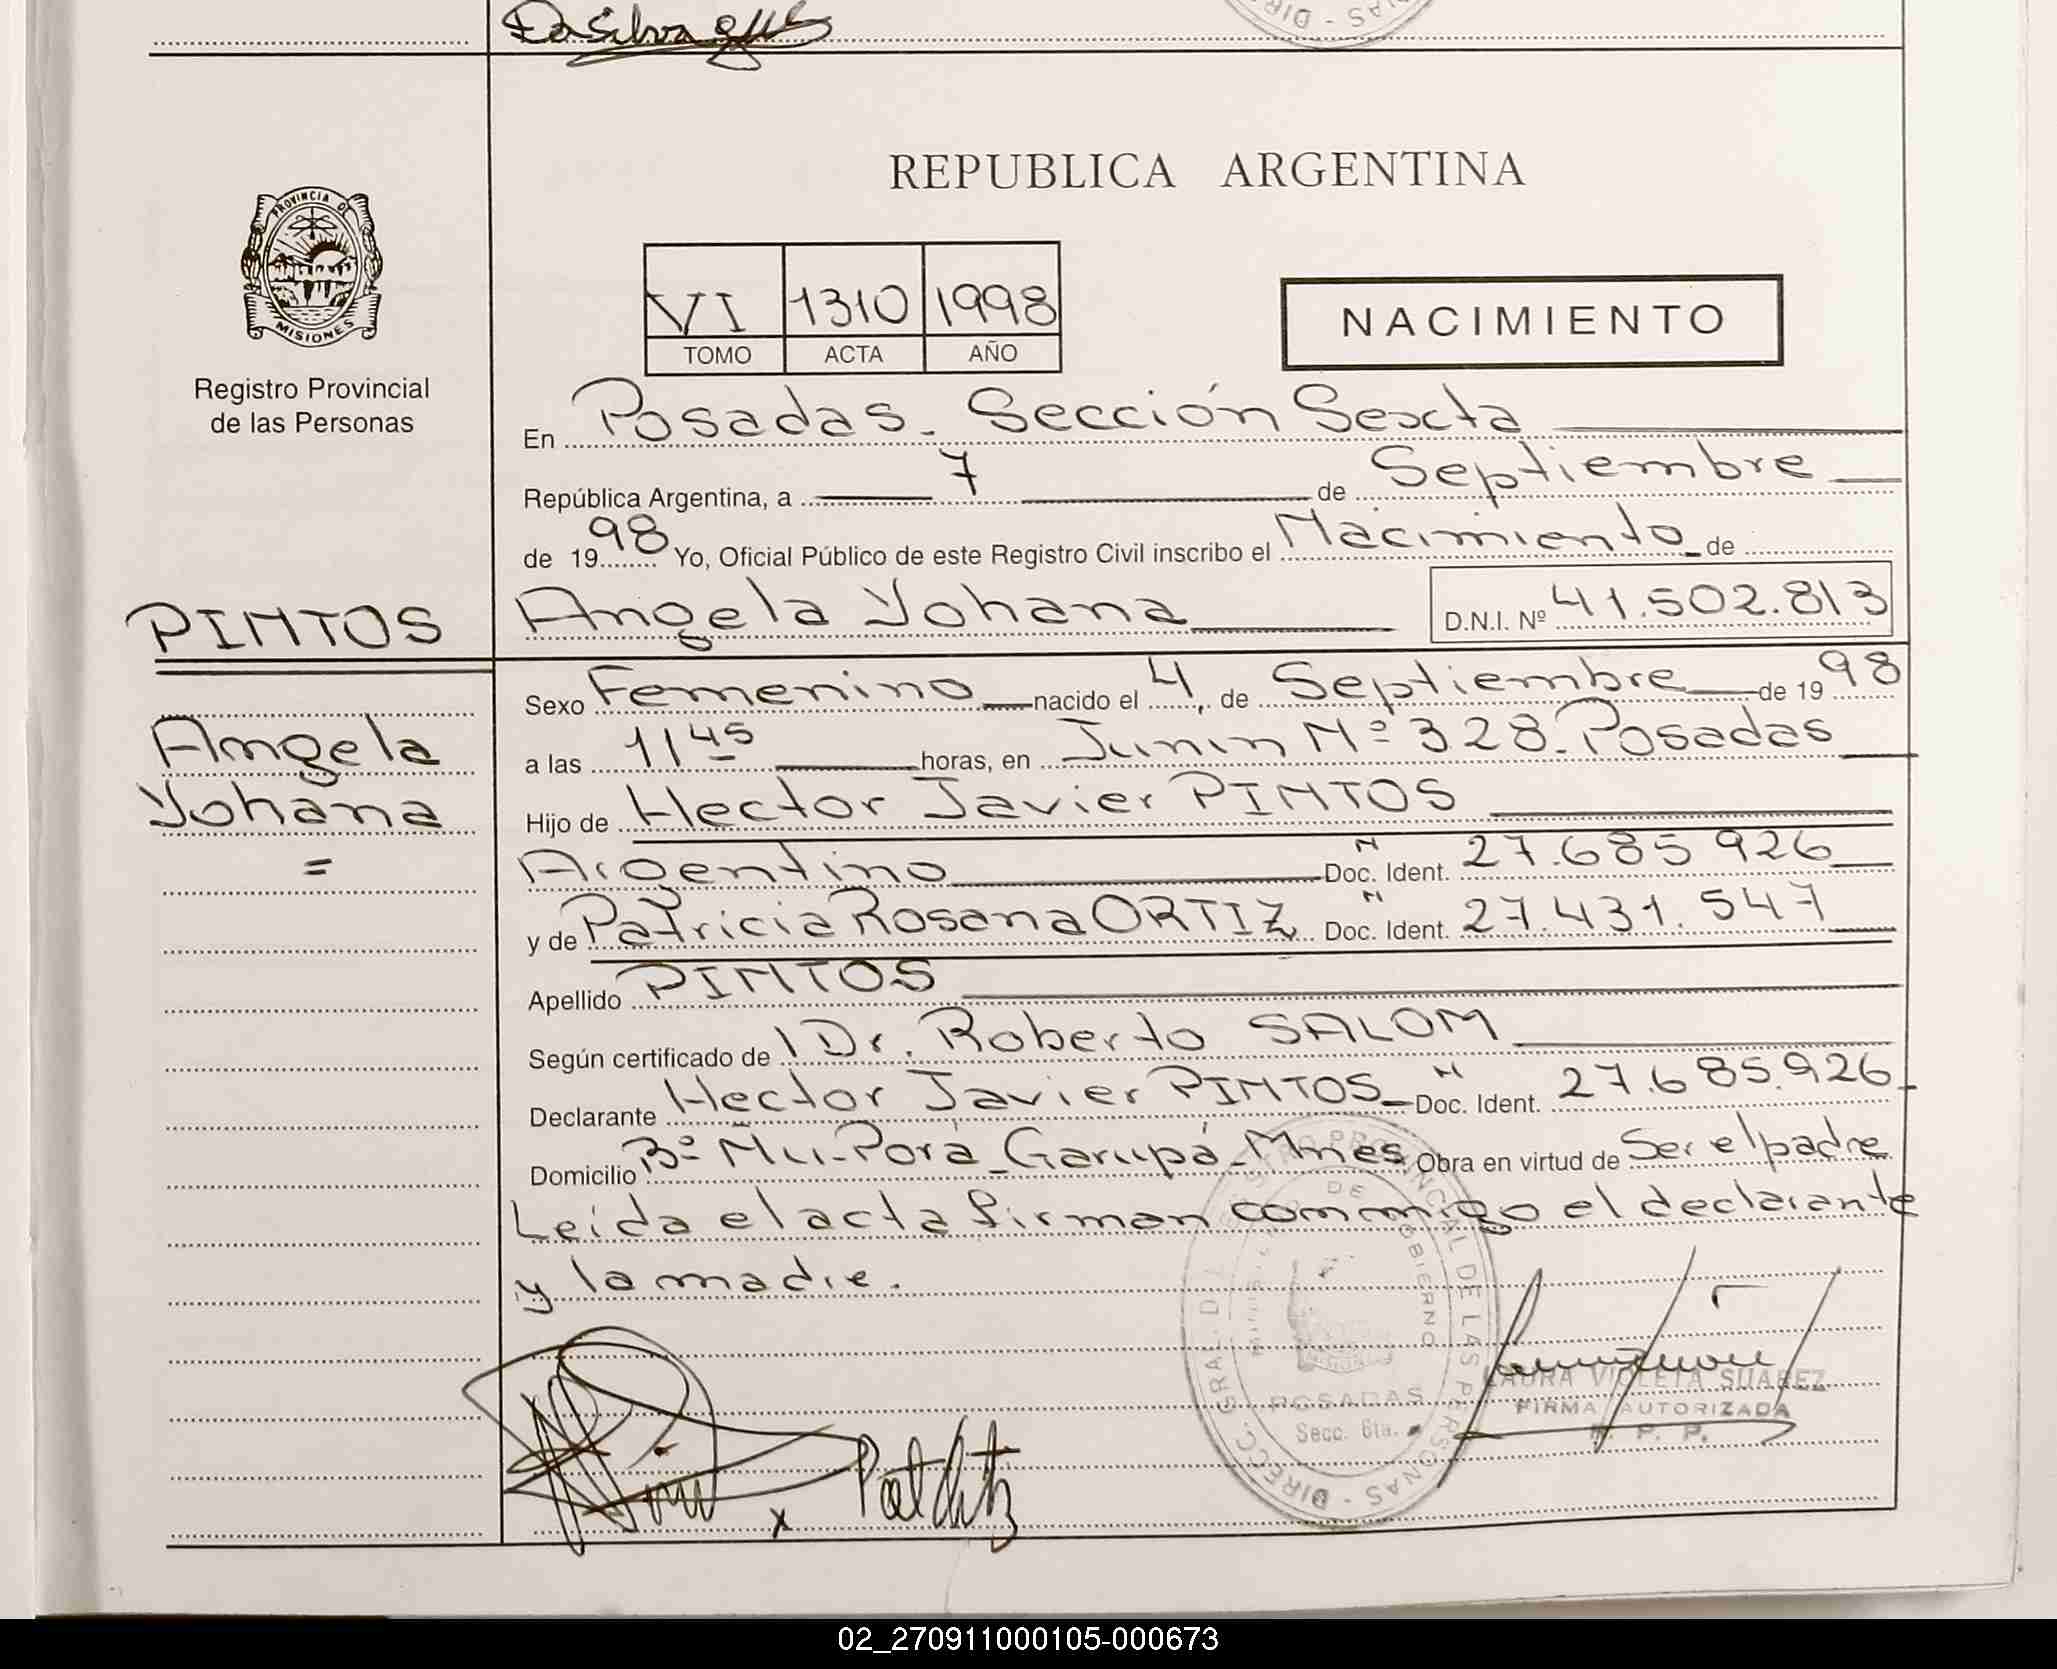 Da Silva
REPUBLICA ARGENTINA
PROVINCIA DE
MISIONES
Registro Provincial
de las Personas
VI 1310 1998
TOMO ACTA AÑO
NACIMIENTO
En Posadas. Sección Sexta
República Argentina, a 7 de Septiembre
de 1998 Yo, Oficial Público de este Registro Civil inscribo el Nacimiento de
PINTOS
Angela Yohana
D.N.I. Nº 41.502.813
Angela
Yohana
=
Sexo Femenino nacido el 4, de Septiembre de 1998
a las 11 45 horas, en Junin Nº 328. Posadas
Hijo de Hector Javier PINTOS
Argentino N Doc. Ident. 27.685.926
y de Patricia Rosana ORTIZ N Doc. Ident. 27.431.547
Apellido PINTOS
Según certificado de Dr. Roberto SALOM
Declarante Hector Javier PINTOS N Doc. Ident. 27.685.926
Domicilio Bº Ñu-Porá Garupá-Mnes Obra en virtud de Ser el padre
Leida el acta firman conmigo el declarante
y la madre.
DIRECC. GRAL. DEL REGISTRO PROVINCIAL DE LAS PERSONAS
MINISTERIO DE GOBIERNO
POSADAS
Secc. 6ta.
LAURA VIOLETA SUAREZ
FIRMA AUTORIZADA
R. P. P.
x
02_270911000105-000673